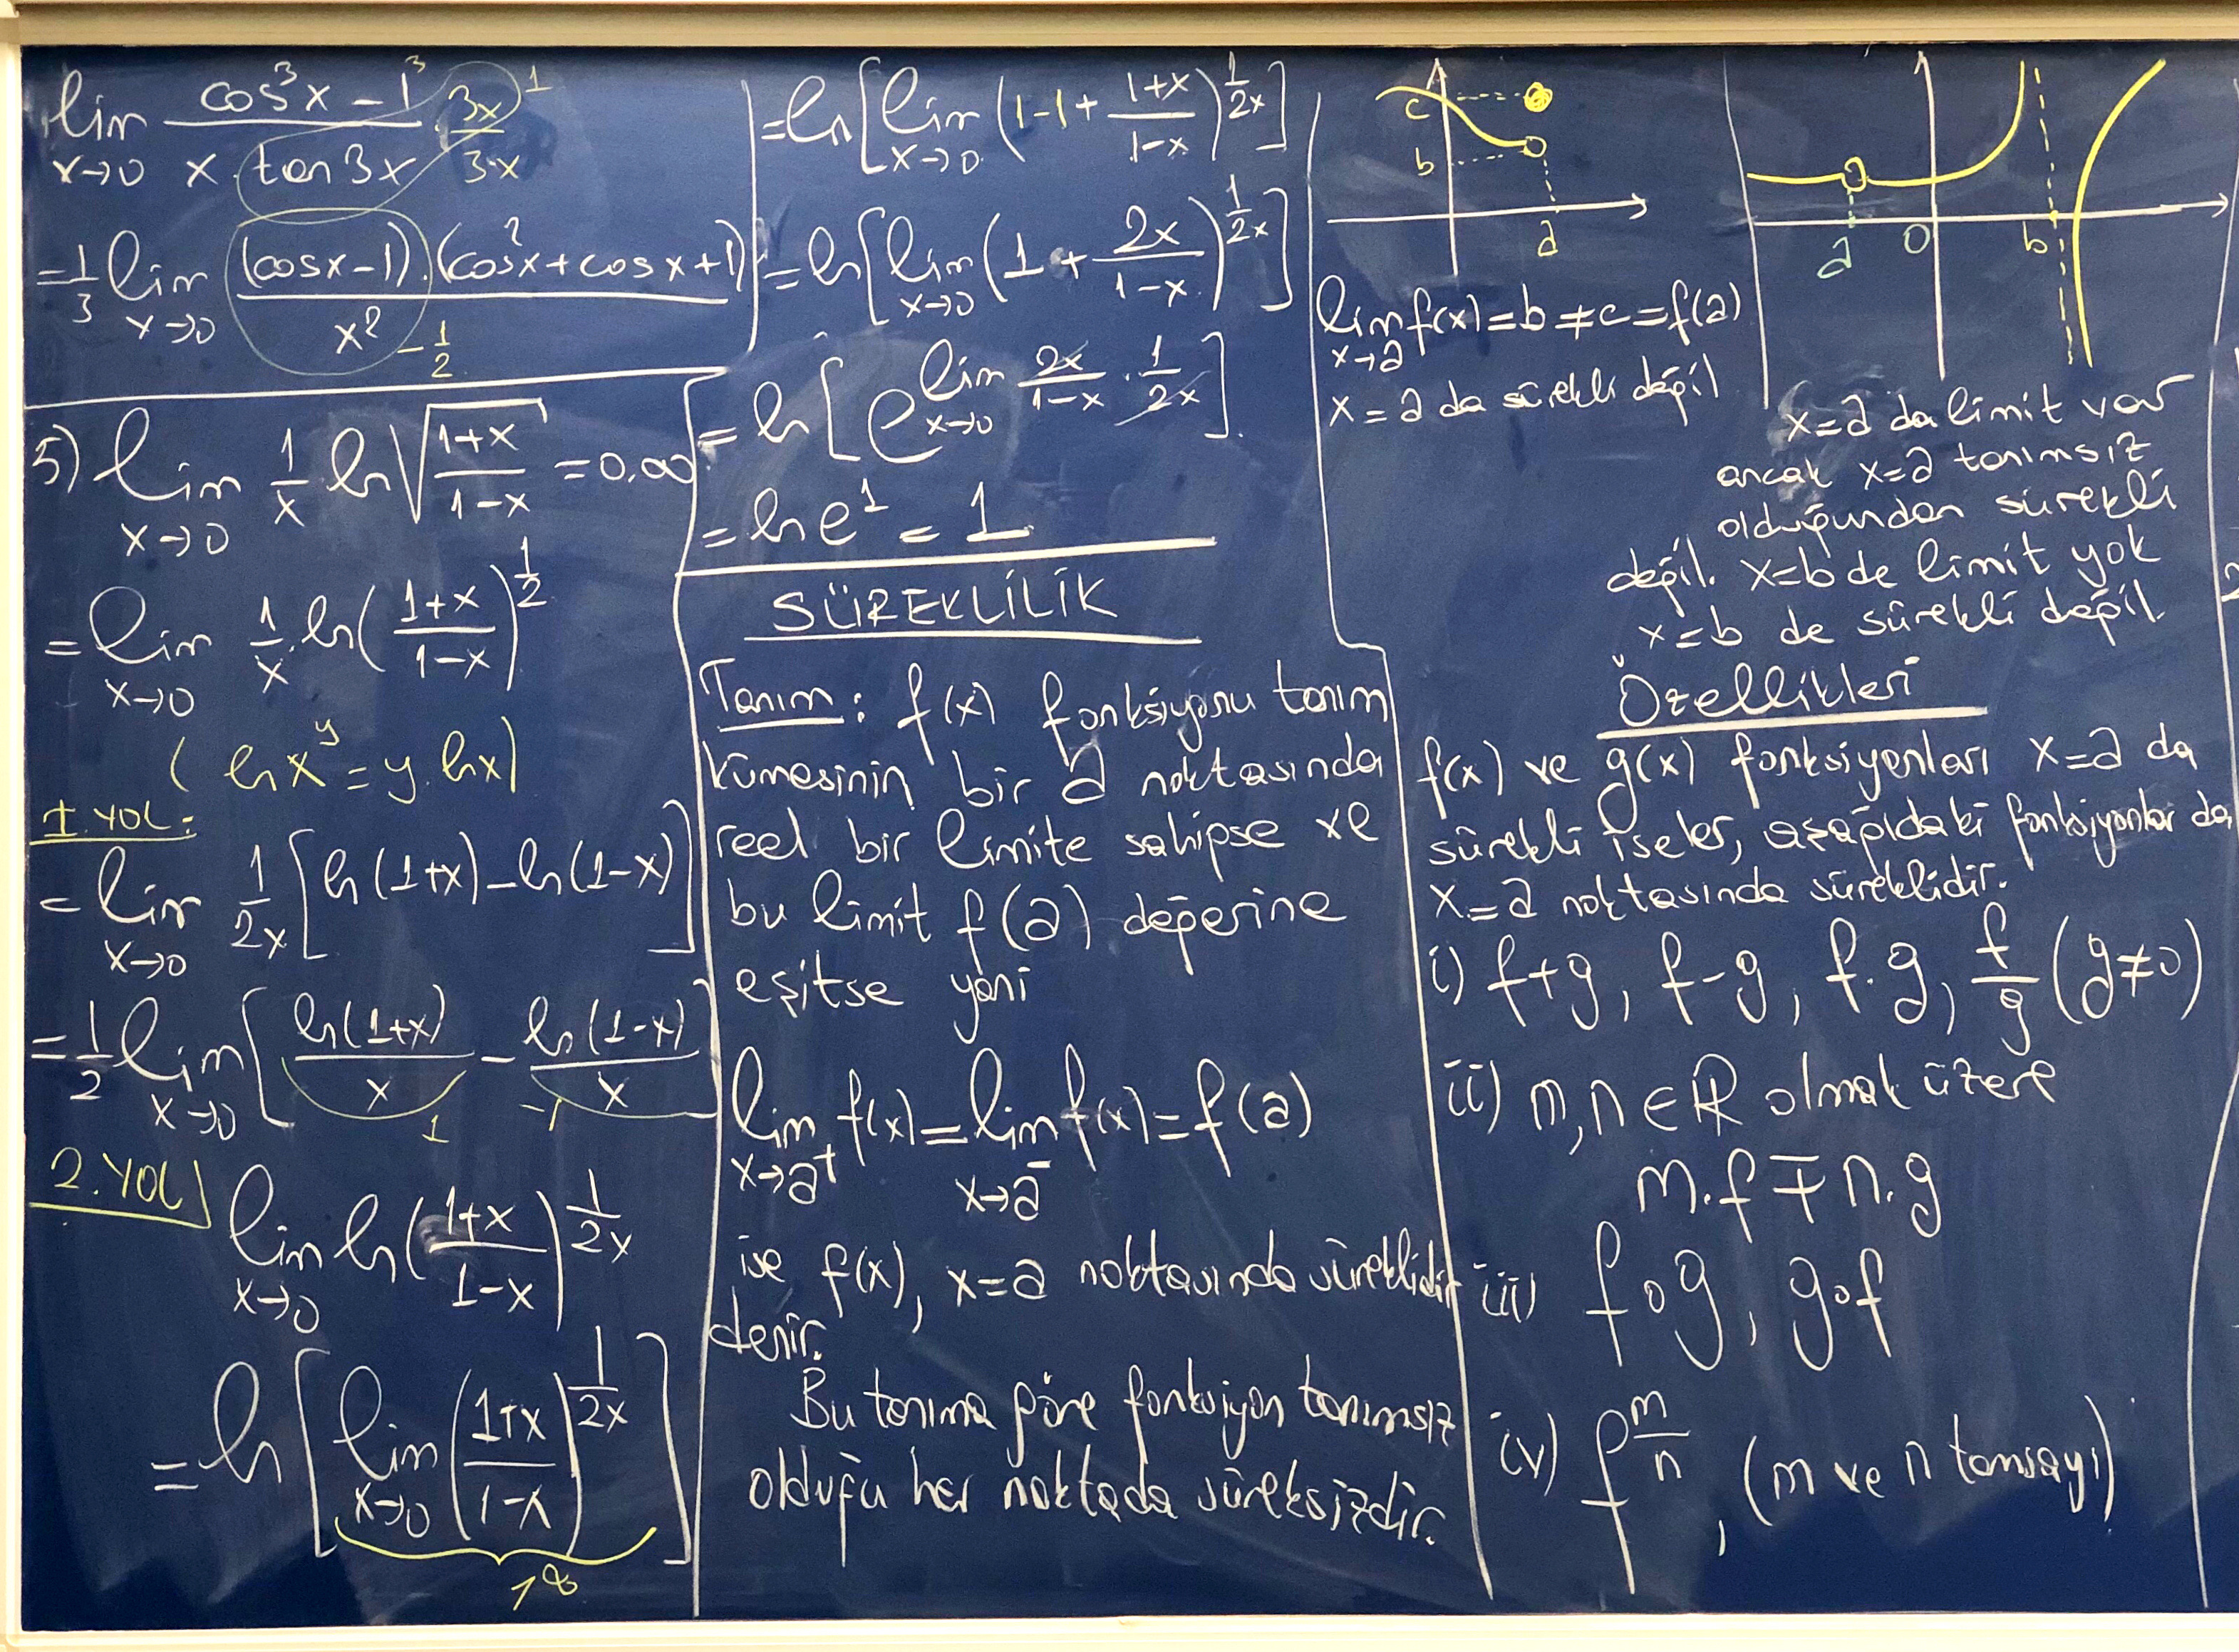 lim x→0 (cos³x − 1³)/(x · tan3x) · 3x/(3·x) 1
= 1/3 lim x→0 (cosx−1)·(cos²x+cosx+1)/x² −1/2
5) lim x→0 1/x ln√((1+x)/(1−x)) = 0.∞
= lim x→0 1/x · ln((1+x)/(1−x))^(1/2)
( ln x^y = y. lnx)
1.YOL:
= lim x→0 1/2x [ln(1+x) − ln(1−x)]
= 1/2 lim x→0 [ln(1+x)/x − ln(1−x)/x]
1 −1
2.YOL
lim x→0 ln((1+x)/(1−x))^(1/2x)
= ln[lim x→0 ((1+x)/(1−x))^(1/2x)]
1^∞
= ln[lim x→0 (1−1+(1+x)/(1−x))^(1/2x)]
= ln[lim x→0 (1+2x/(1−x))^(1/2x)]
= ln[e^(lim x→0 2x/(1−x) · 1/2x)].
= ln e¹ = 1
SÜREKLİLİK
Tanım: f(x) fonksiyonu tanım
kümesinin bir a noktasında
reel bir limite sahipse ve
bu limit f(a) değerine
eşitse yani
lim x→a⁺ f(x) = lim x→a⁻ f(x) = f(a)
ise f(x), x=a noktasında süreklidir
denir.
Bu tanıma göre fonksiyon tanımsız
olduğu her noktada süreksizdir.
c
b
a
lim x→a f(x) = b ≠ c = f(a)
x = a da sürekli değil
a 0 b
x=a da limit var
ancak x=a tanımsız
olduğundan sürekli
değil. x=b de limit yok
x=b de sürekli değil.
Özellikleri
f(x) ve g(x) fonksiyonları x=a da
sürekli iseler, aşağıdaki fonksiyonlar da
x=a noktasında süreklidir.
i) f+g, f−g, f.g, f/g (g≠0)
ii) m,n∈ℝ olmak üzere
m.f ∓ n.g
iii) fog, gof
iv) f^(m/n), (m ve n tamsayı)